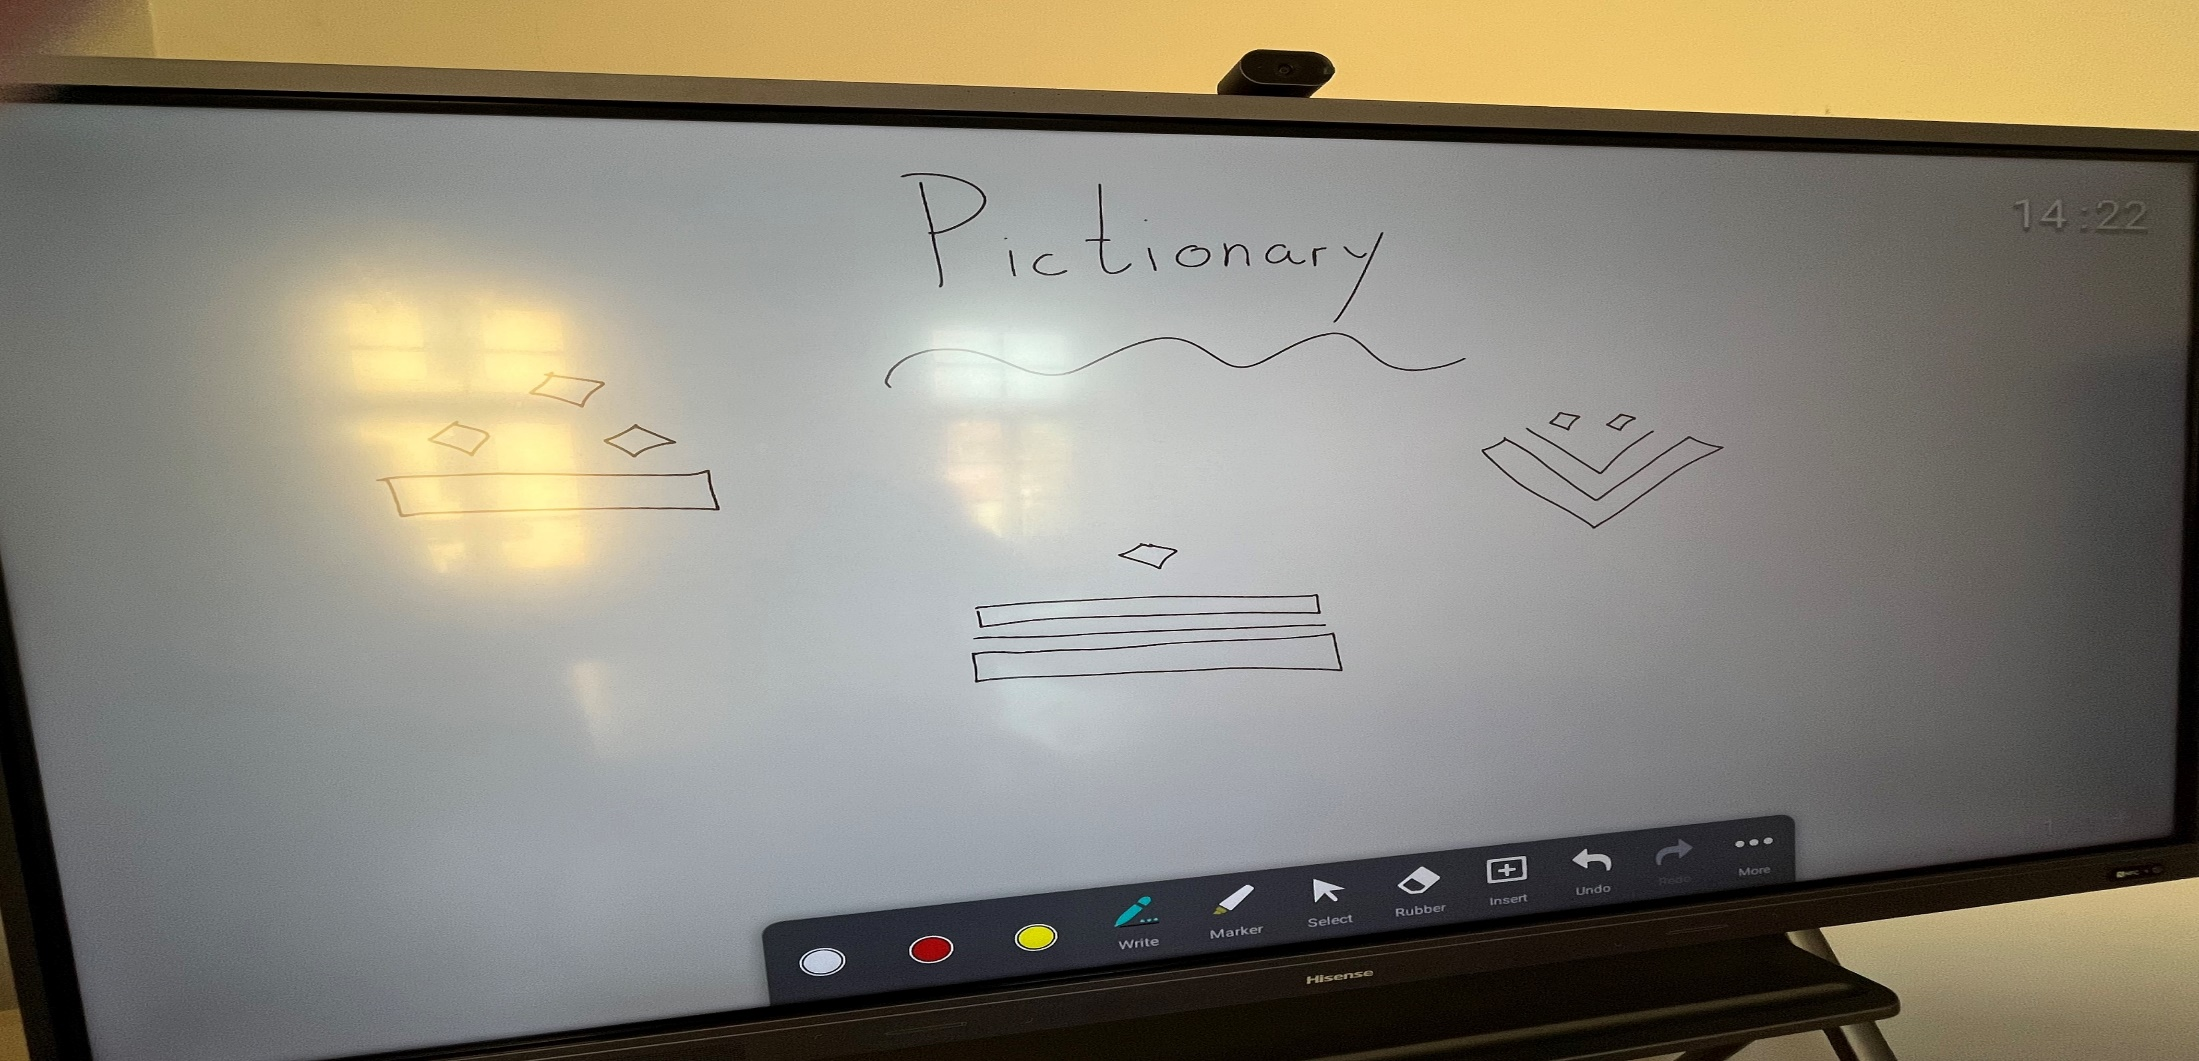 Pictionary
14:22
Write
Marker
Select
Rubber
Insert
Undo
Redo
More
Hisense